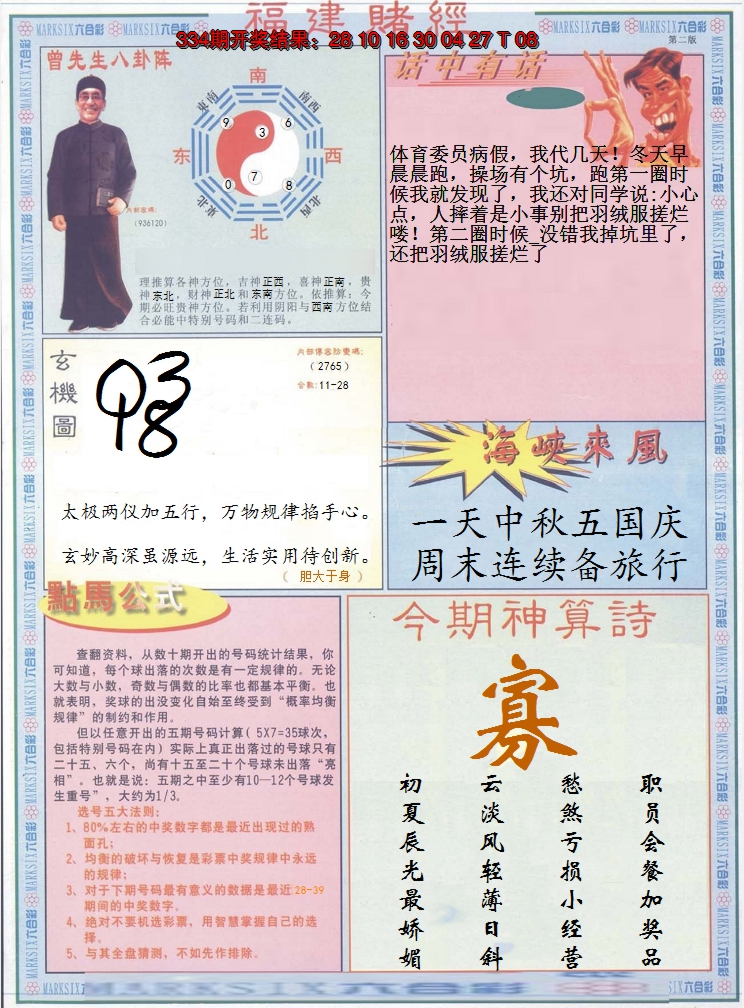 福建賭經
334期开奖结果：28 10 16 30 04 27 T 08
第二版
曾先生八卦陈
南
東南
南西
东
西
東北
北西
北
9
3
6
7
0
8
内部密碼:
（936120）
理推算各神方位，吉神正西，喜神正南，贵
神东北，财神正北和东南方位。依推算：今
期必旺贵神方位。若利用阴阳与西南方位结
合必能中特别号码和二连码。
话中有话
体育委员病假，我代几天！冬天早
晨晨跑，操场有个坑，跑第一圈时
候我就发现了，我还对同学说:小心
点，人摔着是小事别把羽绒服搓烂
喽！第二圈时候_没错我掉坑里了，
还把羽绒服搓烂了
玄機圖
（2765）
合數:11-28
太极两仪加五行，万物规律掐手心。
玄妙高深虽源远，生活实用待创新。
（ 胆大于身 ）
海峽來風
一天中秋五国庆
周末连续备旅行
點馬公式
查翻资料，从数十期开出的号码统计结果，你
可知道，每个球出落的次数是有一定规律的。无论
大数与小数，奇数与偶数的比率也都基本平衡。也
就表明，奖球的出没变化自始至终受到“概率均衡
规律”的制约和作用。
但以任意开出的五期号码计算( 5X7=35球次，
包括特别号码在内) 实际上真正出落过的号球只有
二十五、六个，尚有十五至二十个号球未出落“亮
相”。也就是说：五期之中至少有10—12个号球发
生重号”，大约为1/3。
选号五大法则：
1、80%左右的中奖数字都是最近出现过的熟
面孔；
2、均衡的破坏与恢复是彩票中奖规律中永远
的规律；
3、对于下期号码最有意义的数据是最近28-39
期间的中奖数字。
4、绝对不要机选彩票，用智慧掌握自己的选
择。
5、与其全盘猜测，不如先作排除。
今期神算詩
寡
初夏辰光最娇媚
云淡风轻薄日斜
愁煞亏损小经营
职员会餐加奖品